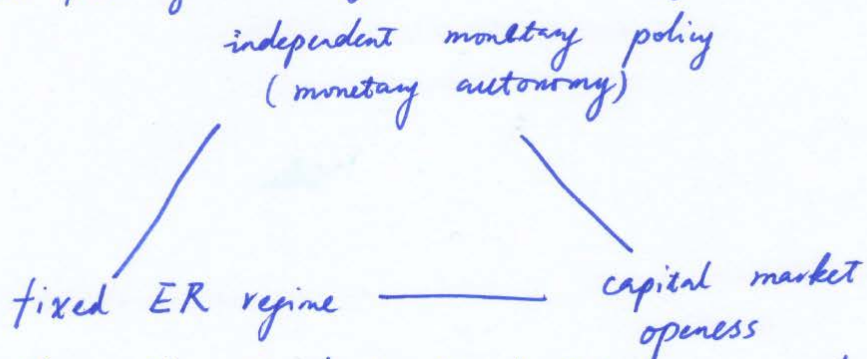 independent monetary policy
(monetary autonomy)
fixed ER regime
capital market
openess